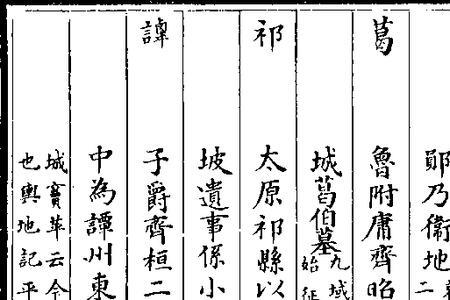 鄖乃衞地
葛 魯附庸齊昭
城葛伯墓九域
始征
祁 太原祁縣以
坡遺事係小
譚 子爵齊桓二
中為譚州東
城竇革云今
也輿地記平